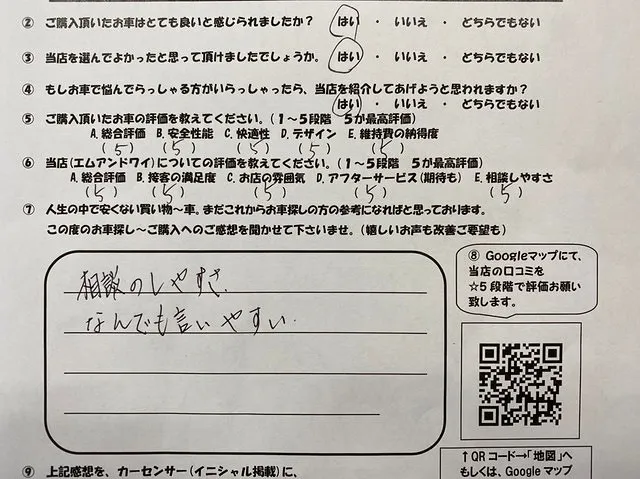 ② ご購入頂いたお車はとても良いと感じられましたか？ はい ・ いいえ ・ どちらでもない
③ 当店を選んでよかったと思って頂けましたでしょうか。 はい ・ いいえ ・ どちらでもない
④ もしお車で悩んでらっしゃる方がいらっしゃったら、当店を紹介してあげようと思われますか？
はい ・ いいえ ・ どちらでもない
⑤ ご購入頂いたお車の評価を教えてください。（１～５段階 ５が最高評価）
A. 総合評価 B. 安全性能 C. 快適性 D. デザイン E. 維持費の納得度
（5） （5） （5） （5） （5）
⑥ 当店（エムアンドワイ）についての評価を教えてください。（１～５段階 ５が最高評価）
A. 総合評価 B. 接客の満足度 C. お店の雰囲気 D. アフターサービス（期待も） E. 相談しやすさ
（5） （5） （5） （5） （5）
⑦ 人生の中で安くない買い物～車。まだこれからお車探しの方の参考になればと思っております。
この度のお車探し～ご購入へのご感想を聞かせて下さいませ。（嬉しいお声も改善ご要望も）
相談のしやすさ.
なんでも言いやすい.
⑧ Googleマップにて、
当店の口コミを
☆５段階で評価お願い
致します。
↑QRコード→「地図」へ
もしくは、Google マップ
⑨ 上記感想を、カーセンサー（イニシャル掲載）に、